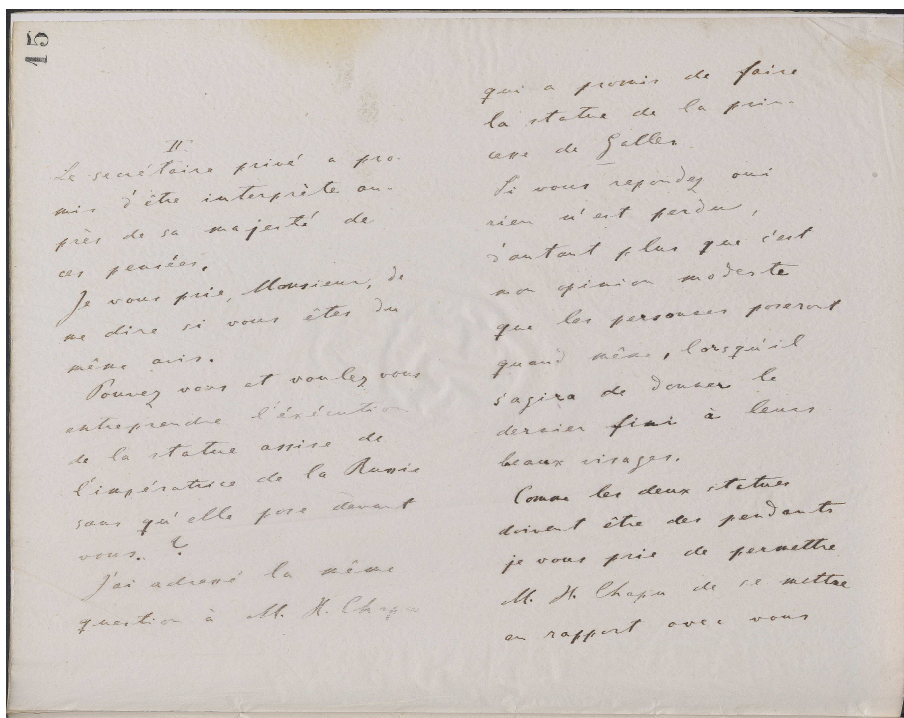 15
II
Le secrétaire privé a pro-
mis d'être interprète au-
près de sa majesté de
ces pensées.
Je vous prie, Monsieur, de
me dire si vous êtes du
même avis.
Pouvez vous et voulez vous
entreprendre l'éxécution
de la statue assise de
l'impératrice de la Russie
sans qu'elle pose devant
vous. ?
J'ai adressé la même
question à M. H. Chapu
qui a promis de faire
la statue de la prin-
cesse de Galles.
Si vous repondez oui
rien n'est perdu,
d'autant plus que c'est
mon opinion modeste
que les personnes poseront
quand même, lorsqu'il
s'agira de donner le
dernier fini à leurs
beaux visages.
Comme les deux statues
doivent être des pendants
je vous prie de permettre
M. H. Chapu de se mettre
en rapport avec vous